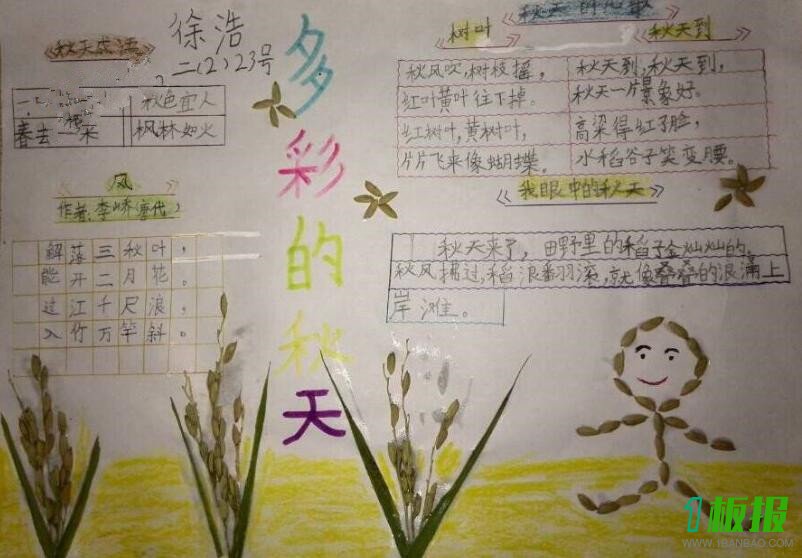 秋天成语
徐浩
二(2)23号
秋色宜人
春去 来
枫林如火
风
作者:李峤(唐代)
解落三秋叶，
能开二月花。
过江千尺浪，
入竹万竿斜。
多彩的秋天
树叶
秋风吹,树枝摇,
红叶黄叶往下掉。
红树叶,黄树叶,
片片飞来像蝴蝶。
秋天到
秋天到,秋天到,
秋天一片景象好。
高梁得红了脸,
水稻谷子笑变腰。
我眼中的秋天
秋天来了,田野里的稻子金灿灿的,
秋风拂过,稻浪翻羽滚,就像叠叠的浪涌上
岸滩。
1板报
WWW.1BANBAO.COM